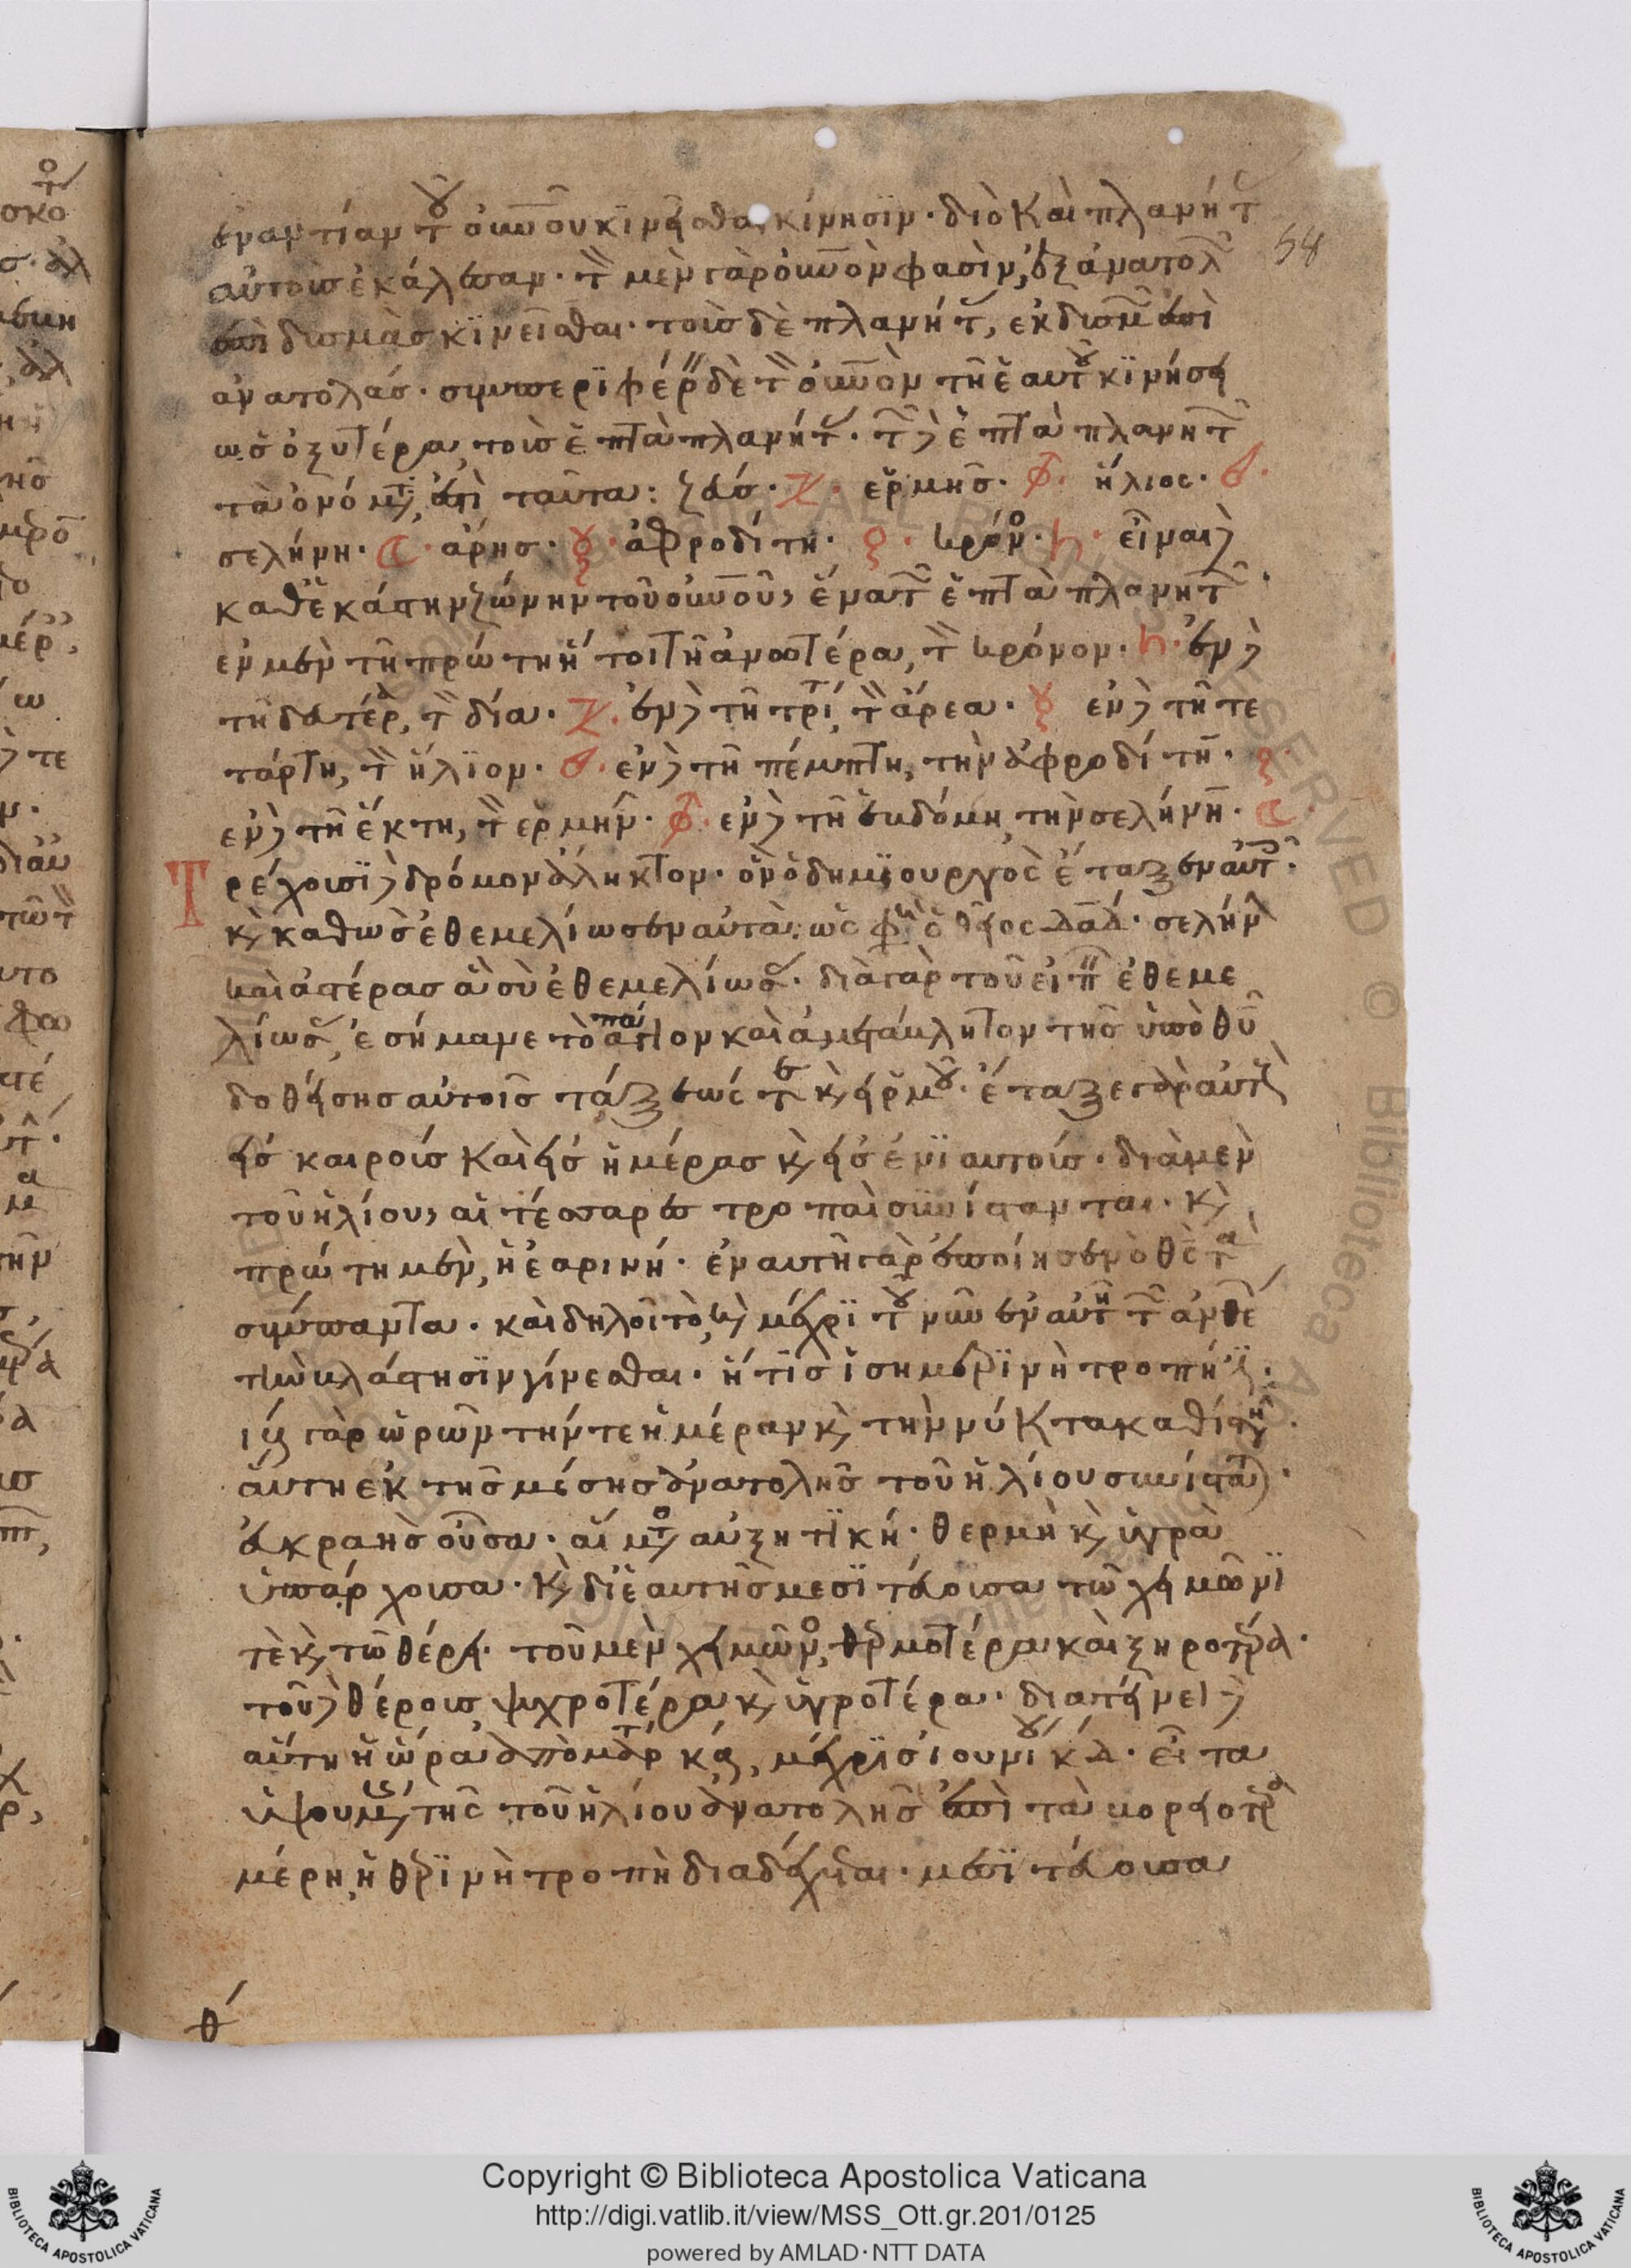 ἐναντίαν τοῦ οὐνοῦ κινεῖσθαι κίνησιν· διὸ καὶ πλανήτ
58
αὐτοὺς ἐκάλεσαν· τὸν μὲν γὰρ οὐνὸν φασὶν, ἐξ ἀνατολ
ἐπὶ δυσμὰς κινεῖσθαι· τοὺς δὲ πλανήτ, ἐκ δυσμ ἐπὶ
ἀνατολάς· συμπεριφέρ δὲ τὸν οὐνὸν τῆ ἑαυτοῦ κινήσει
ὡς ὀξυτέρα τοὺς ἑπτὰ πλανήτ· τῶν δὲ ἑπτὰ πλανητ
τὰ ὀνόματ ἐστὶ ταῦτα: ζεύσ· ἑρμῆς· ἥλιος·
σελήνη· ἄρης· ἀφροδίτη· κρόνο· εἶναι δὲ
καθ ἑκάστην ζώνην τοῦ οὐνοῦ, ἕνα τῶν ἑπτὰ πλανητ·
ἐν μὲν τῆ πρώτη ἤτοι τῆ ἀνωτέρα, τὸν κρόνον· ἐν δὲ
τῆ δευτέρ, τὸν δία· ἐν δὲ τῆ τρίτ, τὸν ἄρεα· ἐν δὲ τῆ τε
τάρτη, τὸν ἥλιον· ἐν δὲ τῆ πέμπτη, τὴν ἀφροδίτην·
ἐν δὲ τῆ ἕκτη, τὸν ἑρμῆν· ἐν δὲ τῆ ἑβδόμη τὴν σελήνην·
Τρέχουσι δὲ δρόμον ἄληκτον· ὃν ὁ δημιουργὸς ἔταξεν αὐτ·
κ καθὼς ἐθεμελίωσεν αὐτὰ: ὥς φη ὁ θεῖος δαδ· σελήν
καὶ ἀστέρας ἃ σὺ ἐθεμελίωσ· διὰ γὰρ τοῦ εἰπ ἐθεμε
λίωσ, ἐσήμανε τὸ ἄπαυστον καὶ ἀμετάκλητον τῆς ὑπὸ θυ
δοθείσης αὐτοῖς τάξεώς τε κ εἱρμοῦ· ἔταξε γὰρ αὐτ
εἰς καιροὺς καὶ εἰς ἡμέρας κ εἰς ἐνιαυτούς· διὰ μὲν
τοῦ ἡλίου, αἱ τέσσαρες τροπαὶ συνίστανται· κ
πρώτη μὲν, ἡ ἐαρινή· ἐν αὐτῆ γὰρ ἐποίησεν ὁ θς τὰ
σύμπαντα· καὶ δηλοῖ τὸ κ μέχρι τοῦ νῦν ἐν αὐτῆ τῶν ἀνθέ
τὴν κλάστησιν γίνεσθαι· ἥτις ἰσημερινὴ τροπή ἐστι·
ιβ γὰρ ὡρῶν τήν τε ἡμέραν κ τὴν νύκτα καθίστησι·
αὕτη ἐκ τῆς μέσης ἀνατολῆς τοῦ ἡλίου συνίσταται·
εὐκραὴς οὖσα· αἵματος αὐξητική· θερμὴ κ ὑγρὰ
ὑπάρχουσα· κ δι ἑαυτῆς μεσιτεύουσα τῶ χειμῶνι
τὲ κ τῶ θέρει· τοῦ μὲν χειμῶνο, θερμοτέρα καὶ ξηροτέρα·
τοῦ δὲ θέρους ψυχροτέρα κ ὑγροτέρα· διατείνει δὲ
αὕτη ἡ ὥρα ἀπὸ μαρτ κδ, μέχρις ἰουνίου κδ· εἶτα
ὑψουμένης τῆς τοῦ ἡλίου ἀνατολῆς ἐπὶ τὰ βορειότερα
μέρη, ἡ θερινὴ τροπὴ διαδέχεται· μεσιτεύουσα
θ
Copyright © Biblioteca Apostolica Vaticana
http://digi.vatlib.it/view/MSS_Ott.gr.201/0125
powered by AMLAD·NTT DATA